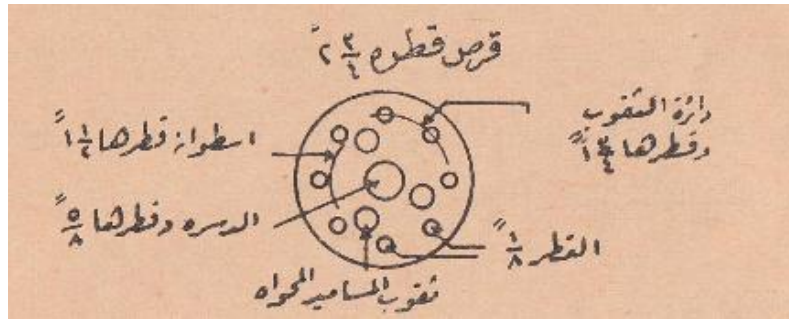 قرص قطره ٢ ٣/٤"
دائرة الثقوب
وقطرها ١ ٣/٤"
اسطوانه قطرها ١ ١/٢"
السره وقطرها ٥/٨"
القطر ١/٨"
ثقوب المسامير المحواه